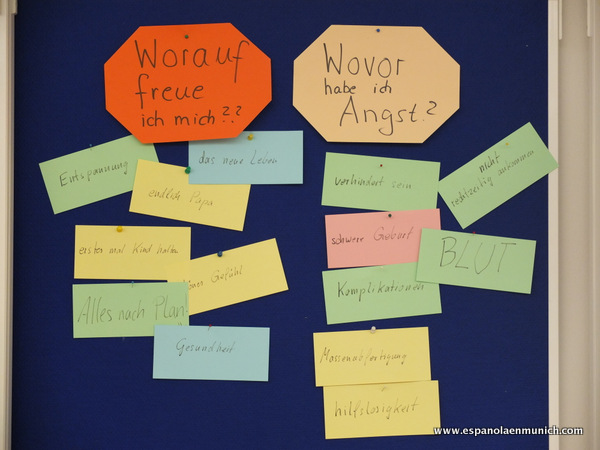 Worauf
freue
ich mich??
Entspannung
das neue Leben
endlich Papa
erstes mal Kind halten
Gefühl
Alles nach Plan
Gesundheit
Wovor
habe ich
Angst?
verhindert sein
nicht
rechtzeitig ankommen
schwere Geburt
BLUT
Komplikationen
Massenabfertigung
hilfslosigkeit
www.espanolaenmunich.com